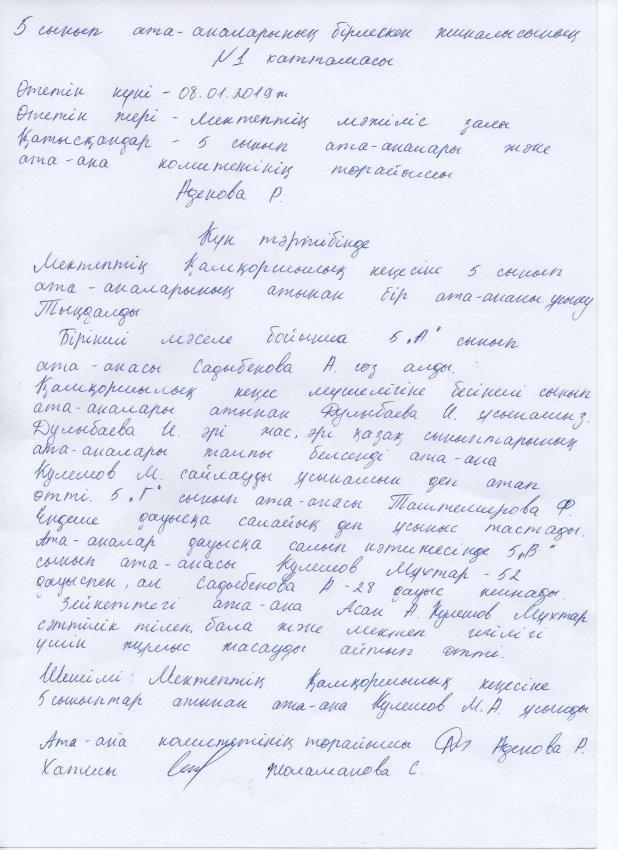 5 сынып ата-аналарының бірлескен жиналысының
№1 хаттамасы
Өтетін күні - 08.01.2019ж
Өтетін жері - Мектептің мәжіліс залы
Қатысқандар - 5 сынып ата-аналары және
ата-ана комитетінің төрайымы
Аденова Р.
Күн тәртібінде
Мектептің Қамқоршылық кеңесіне 5 сынып
ата-аналарының атынан бір ата-ананы ұсыну
Тыңдалды
Бірінші мәселе бойынша 5 „А" сынып
ата-анасы Садыбекова А. сөз алды.
Қамқоршылық кеңес мүшелігіне бесінші сынып
ата-аналары атынан Дулыбаева И. ұсынамыз.
Дулыбаева И. әрі жас, әрі қазақ сыныптарының
ата-аналары жалпы белсенді ата-ана
Кулешов М. сайлауды ұсынамын деп атап
өтті. 5 „Г" сынып ата-анасы Таштемирова Ф.
Ендеше дауысқа салайық деп ұсыныс тастады.
Ата-аналар дауысқа салып нәтижесінде 5 „В"
сынып ата-анасы Кулешов Мухтар - 52
дауыспен, ал Садыбекова А - 28 дауыс жинады.
Зейнеттегі ата-ана Асан А. Кулешов Мухтар
сәттілік тілеп, бала және мектеп игілігі
үшін жұмыс жасауды айтып өтті.
Шешімі: Мектептің Қамқоршылық кеңесіне
5 сыныптар атынан ата-ана Кулешов М.А. ұсынды
Ата-ана комитетінің төрайымы Аденова Р.
Хатшы Жоламанова С.